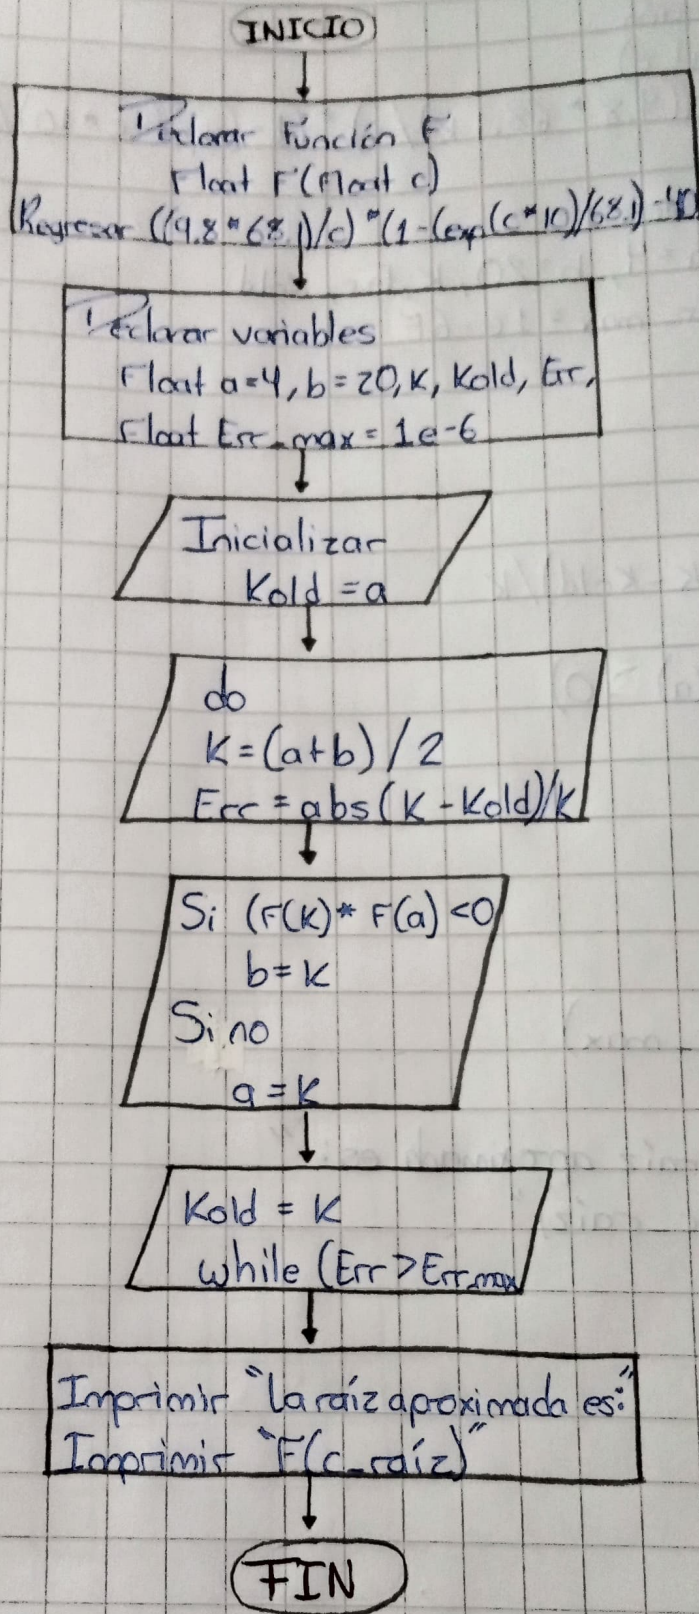 INICIO
Declarar Función F
Float F(float c)
Regresar ((9.8*68.1)/c)*(1-(exp(c*10)/68.1)-40
Declarar variables
Float a=4, b=20, K, Kold, Err,
Float Err_max=1e-6
Inicializar
Kold=a
do
K=(a+b)/2
Err=abs(K-Kold)/K
Si (F(K)*F(a)<0
b=K
Sino
a=K
Kold=K
while (Err>Err_max
Imprimir "la raíz aproximada es:"
Imprimir "F(c_raíz)"
FIN